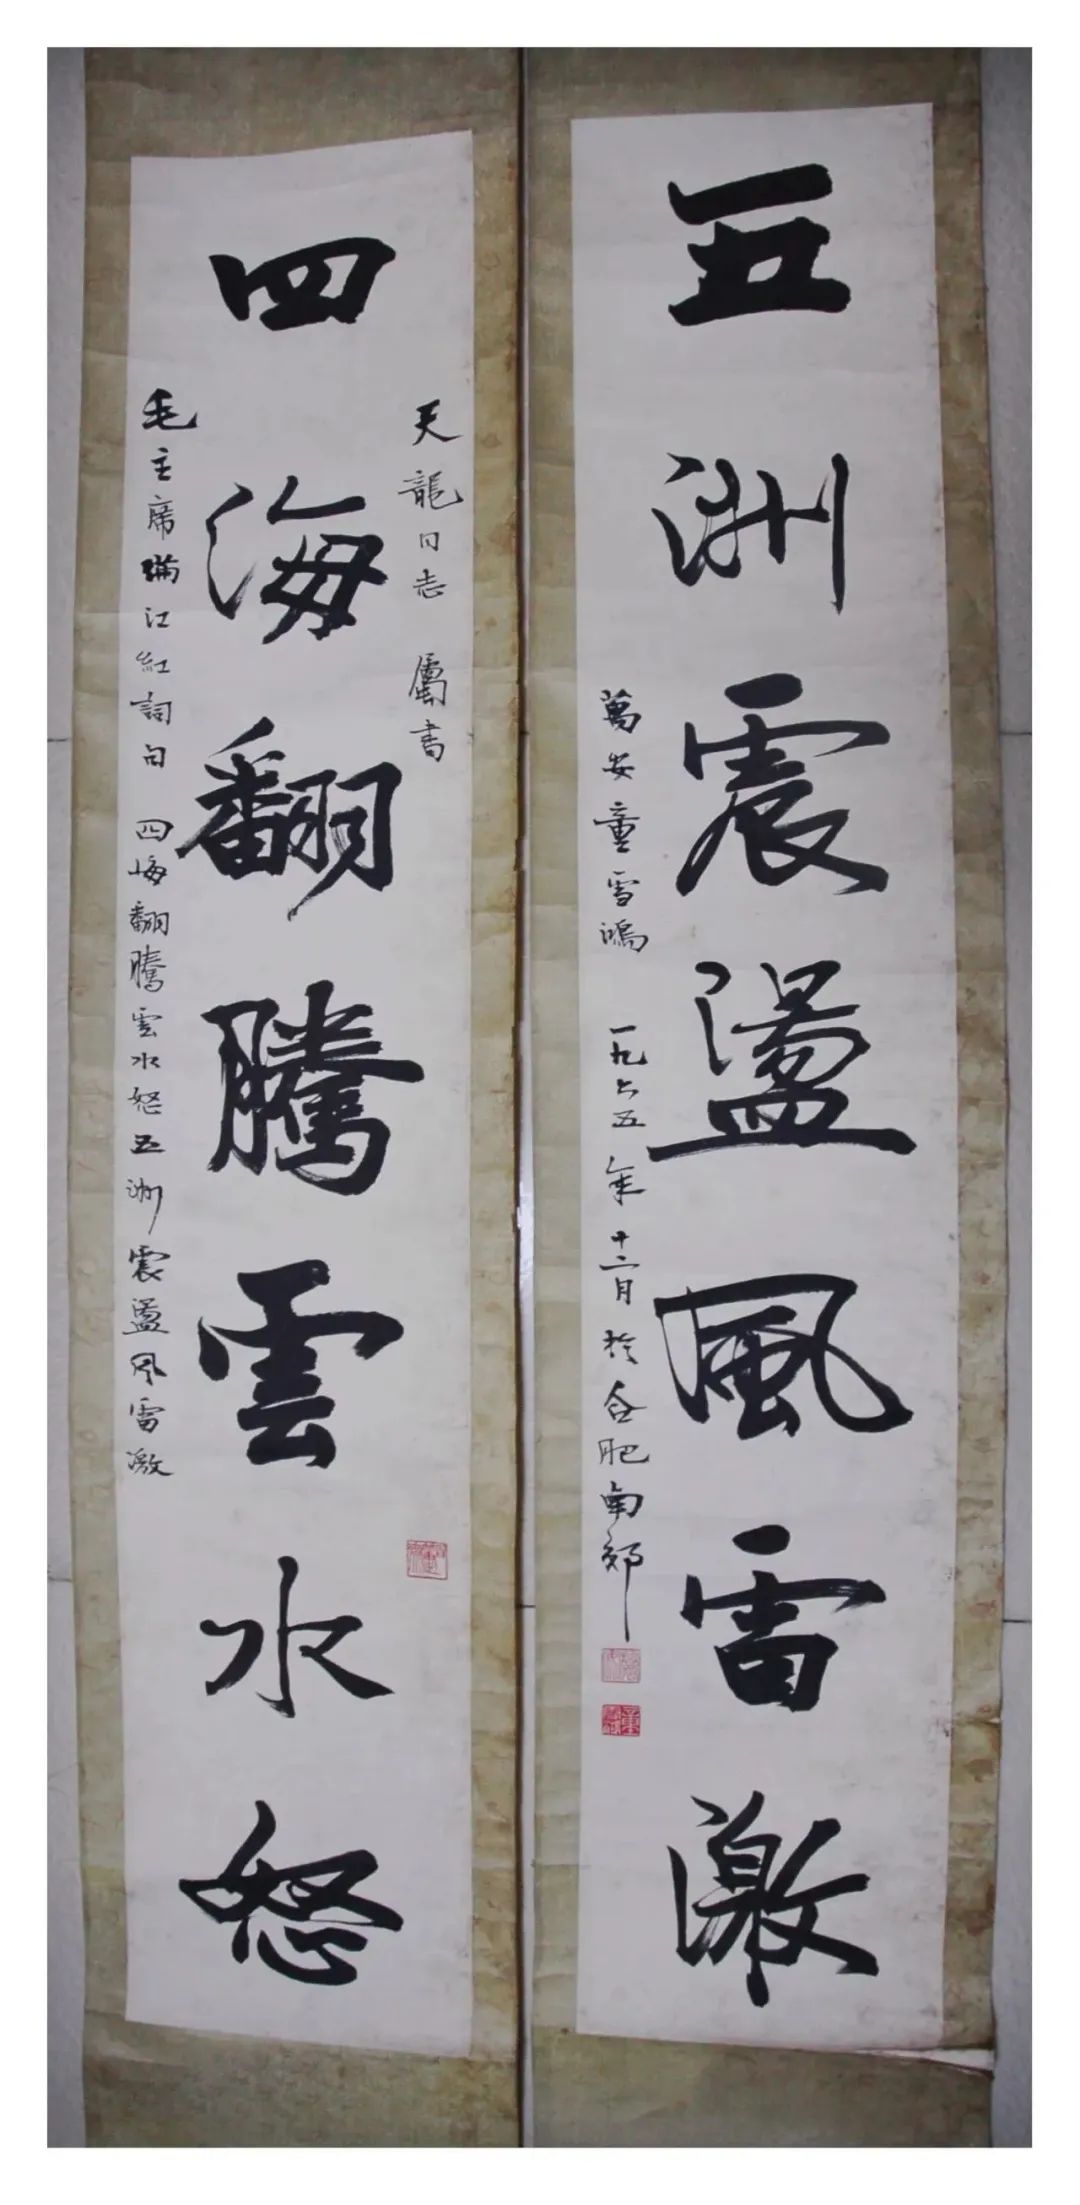 天龍同志 屬書
四海翻騰雲水怒
毛主席滿江紅詞句 四海翻騰雲水怒五洲震盪風雷激
五洲震盪風雷激
萬安童雪鴻 一九六五年十二月於合肥南郊